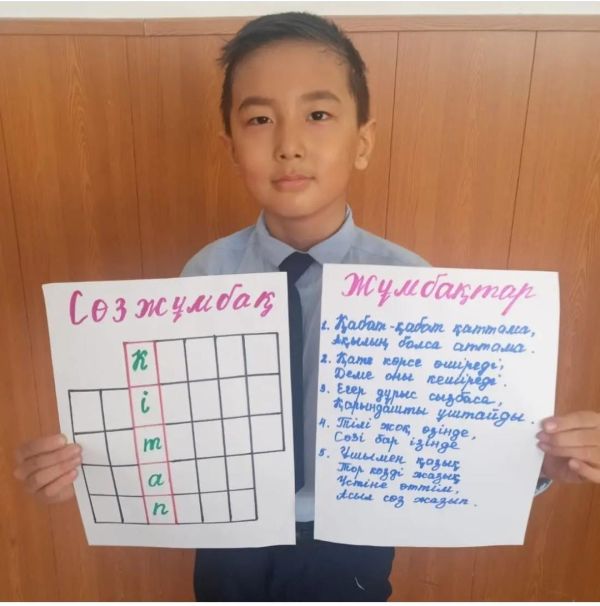 Сөзжұмбақ
К
і
т
а
п
Жұмбақтар
1. Қабат-қабат қаттама,
Ақылың болса аттама.
2. Қате көрсе өшіреді,
Деме оны кешіреді.
3. Егер дұрыс сызбаса,
Қарындашты ұштайды.
4. Тілі жоқ өзінде,
Сөзі бар ізінде
5. Ұшымен қозық
Тор көзді жазық
Үстіне өттім,
Асыл сөз жазып.